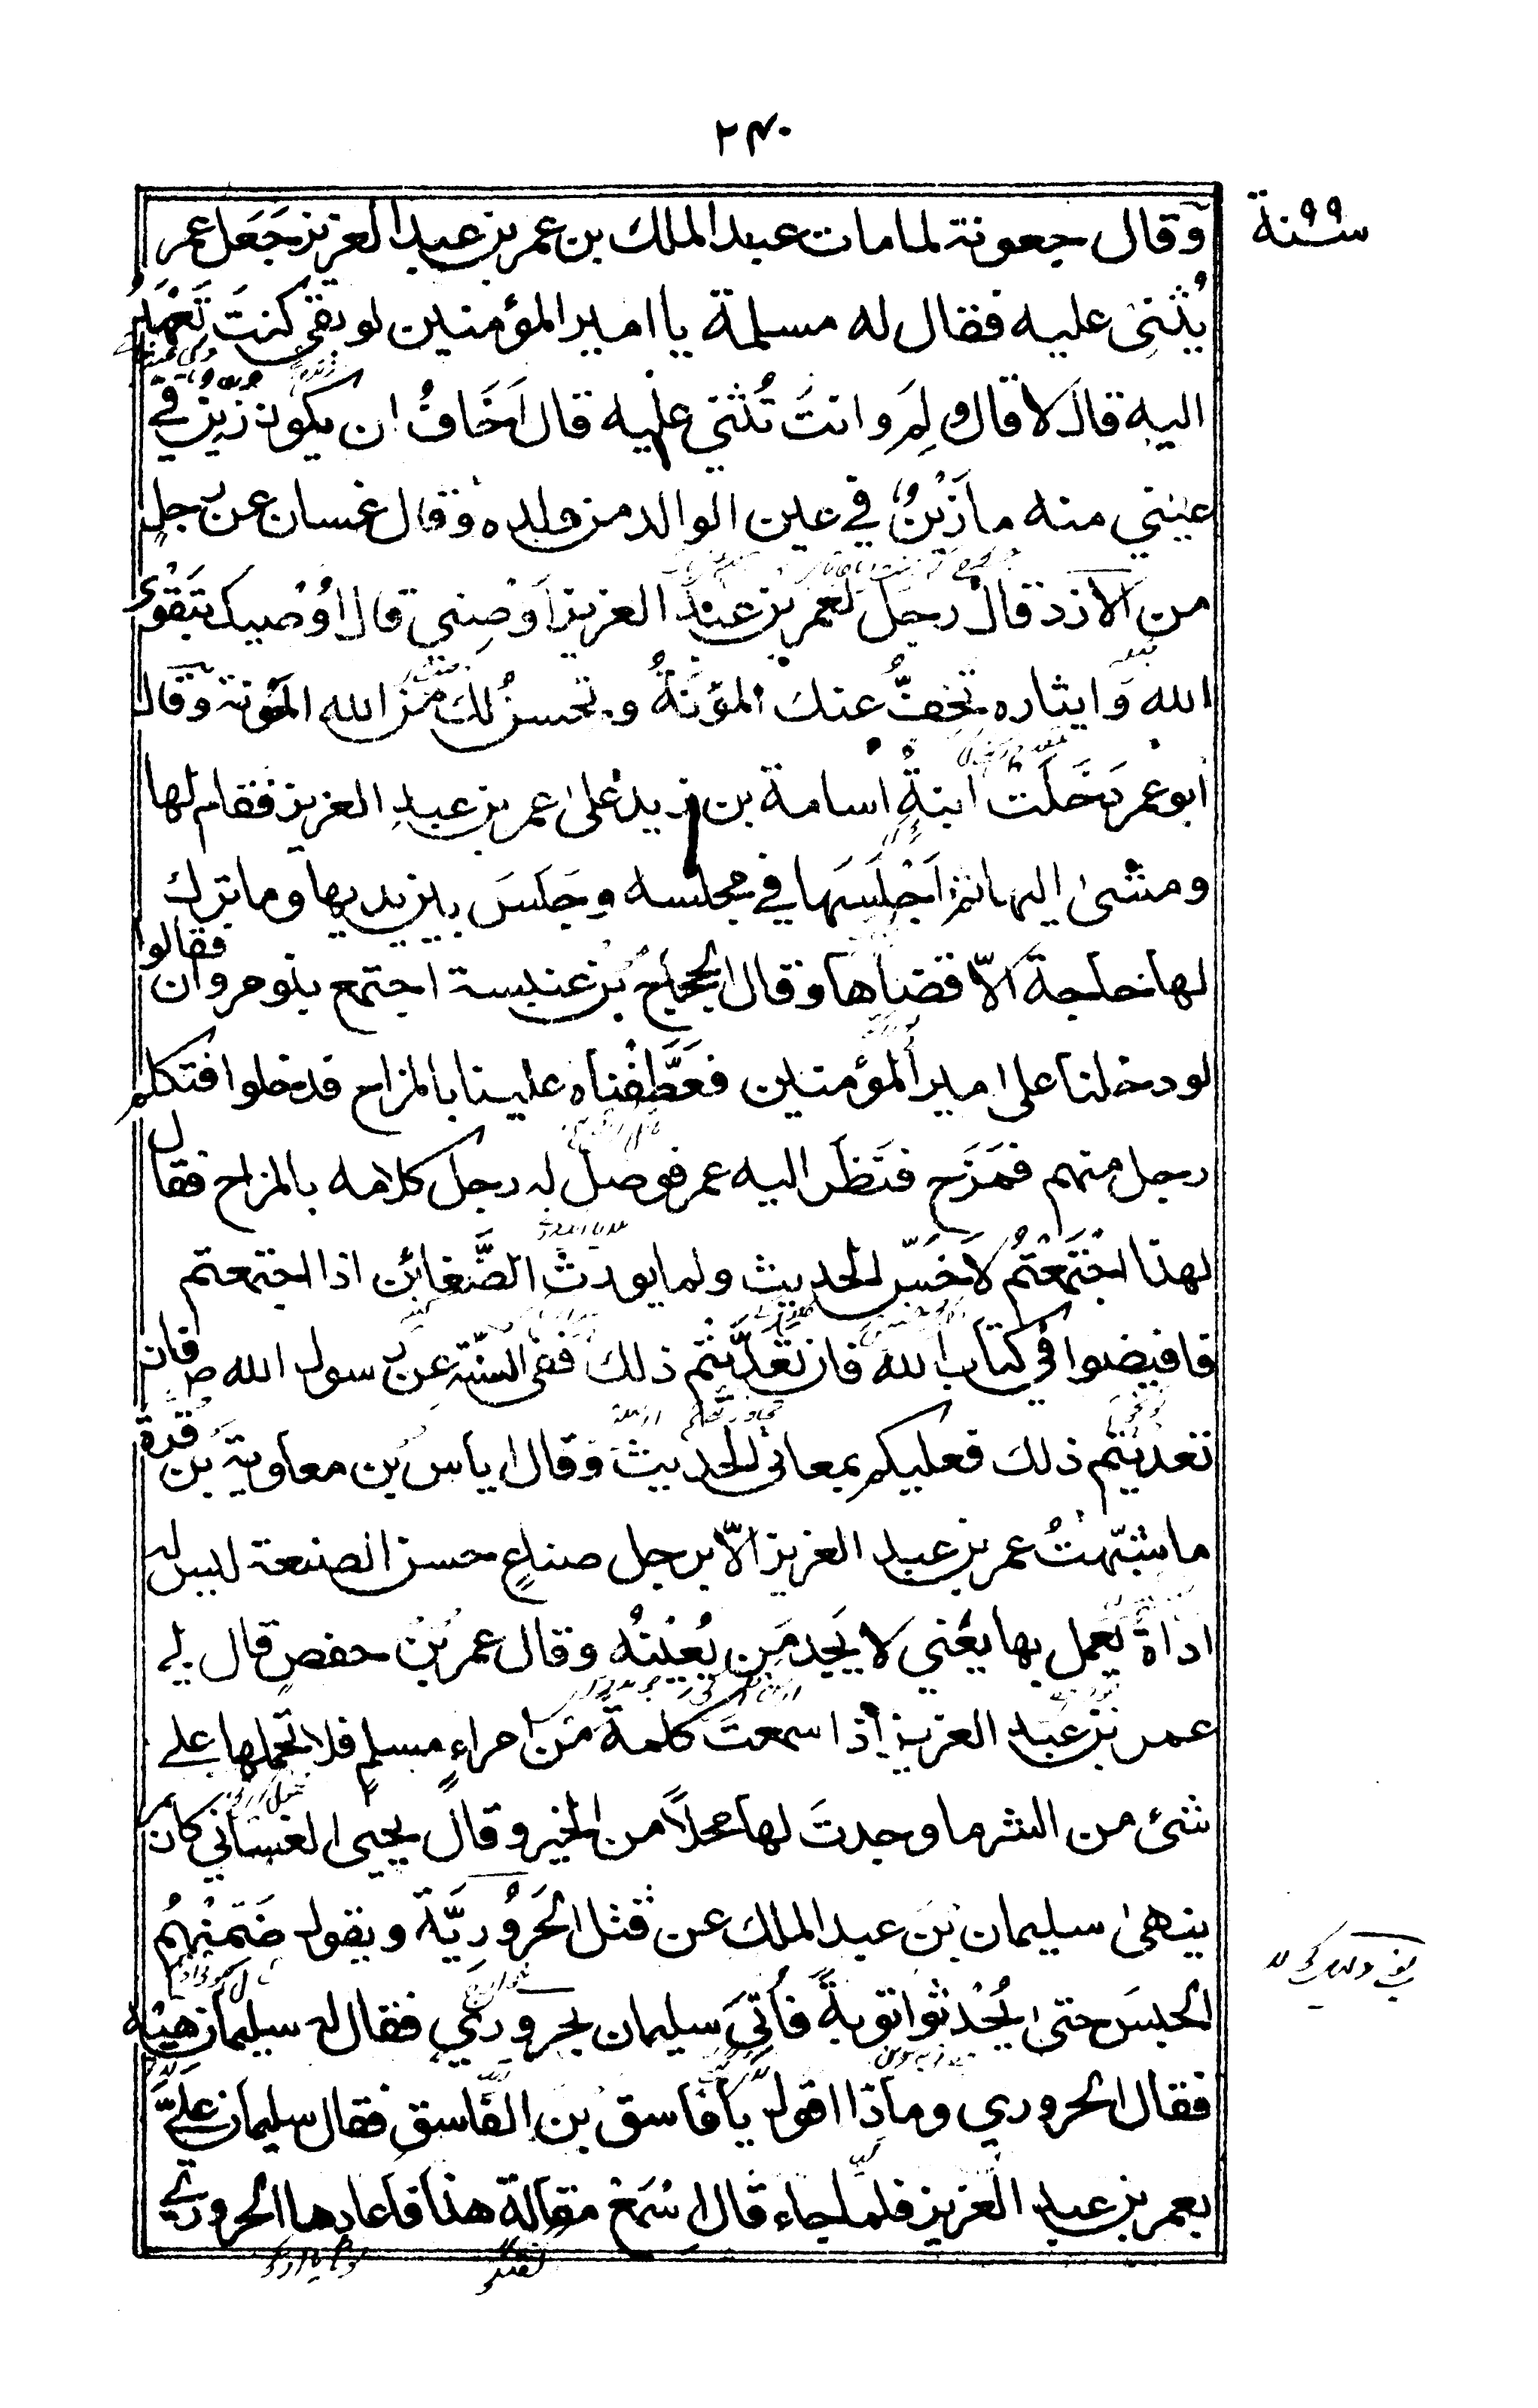 ٢٤٠
سنة ٩٩
وقال جعونة لمامات عبد الملك بن عمر بن عبد العزيز جَعَل عمر
يُثنِي عليه فقال له مسلمة يا امير المؤمنين لو بقي كنتَ تَعْهَدُ
اليه قال لا قال ولِمَ وانتَ تُثني عليه قال اَخَافُ ان يكون زين في
عيني منه ما زُيّنَ في عين الوالد من ولده وقال غسان عن رجل
من الازد قال رجل لعمر بن عبد العزيز اَوْصِني قال اُوْصيك بتَقْوى
الله وايثاره تخِفُّ عنك المؤنةُ وتحسن لك من الله المعونة وقال
ابو عمر دَخَلَتْ ابنةُ اسامة بن زيد على عمر بن عبد العزيز فقام لها
ومشى اليها ثم اَجْلَسَها في مجلسه وجَلَسَ بين يديها وما ترك
لها حاجة الاّ قضاها وقال الحجاج بن عنبسة اجتمع بنو مروان فقالوا
لو دخلنا على امير المؤمنين فعَطَّفْناه علينا بالمزاح فدخلوا فتكلم
رجل منهم فمَزَح فنَظَر اليه عمر فوصل له رجل كلامه بالمزاح فقال
لهذا اجْتَمَعْتُمْ لاَخَسّ الحديث ولما يورث الضَّغائن اذا اجتمعتم
فافيضوا في كتاب الله فان تعَدَّيْتم ذلك ففي السنّة عن رسول الله ص فان
تعديتم ذلك فعليكم بمعاني الحديث وقال اياس بن معاوية بن قرة
ما شبّهتُ عمر بن عبد العزيز الاّ برجل صناعٍ حسن الصنعة ليس له
اداة يعمل بها يَعْني لا يَجِد مَن يُعِيْنُه وقال عمر بن حفص قال لي
عمر بن عبد العزيز اذا سمعتَ كلمة مِن امراءٍ مسلمٍ فلا تحملها على
شئ من الشر ما وجدتَ لها محملاً من الخير وقال يحيى الغسّاني كان عمر
ينهى سليمان بن عبد الملك عن قتل الحَرُوْرِيَّة ويقول ضَمِّنْهُم
الحبسَ حتى يُحْدثوا توبةً فاُتِيَ سليمان بحروري فقال له سليمان هِيْه
فقال الحروري وماذا اقول يا فاسق بن الفاسق فقال سليمان عَلَيَّ
بعمر بن عبد العزيز فلما جاء قال اسْمَعْ مقالة هذا فاعادها الحروري